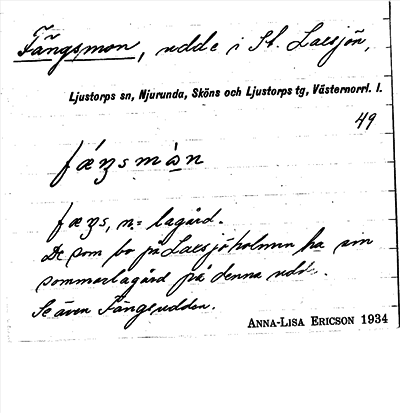 Fängsmon, udde i St. Laxsjön,
Ljustorps sn, Njurunda, Sköns och Ljustorps tg, Västernorrl. l.
49
fǽŋsmὼn
fæŋs, n. = lagård.
De som bo på Laxsjöholmen ha sin
sommarlagård på denna udd.
Se även Fängsudden.
ANNA-LISA ERICSON 1934